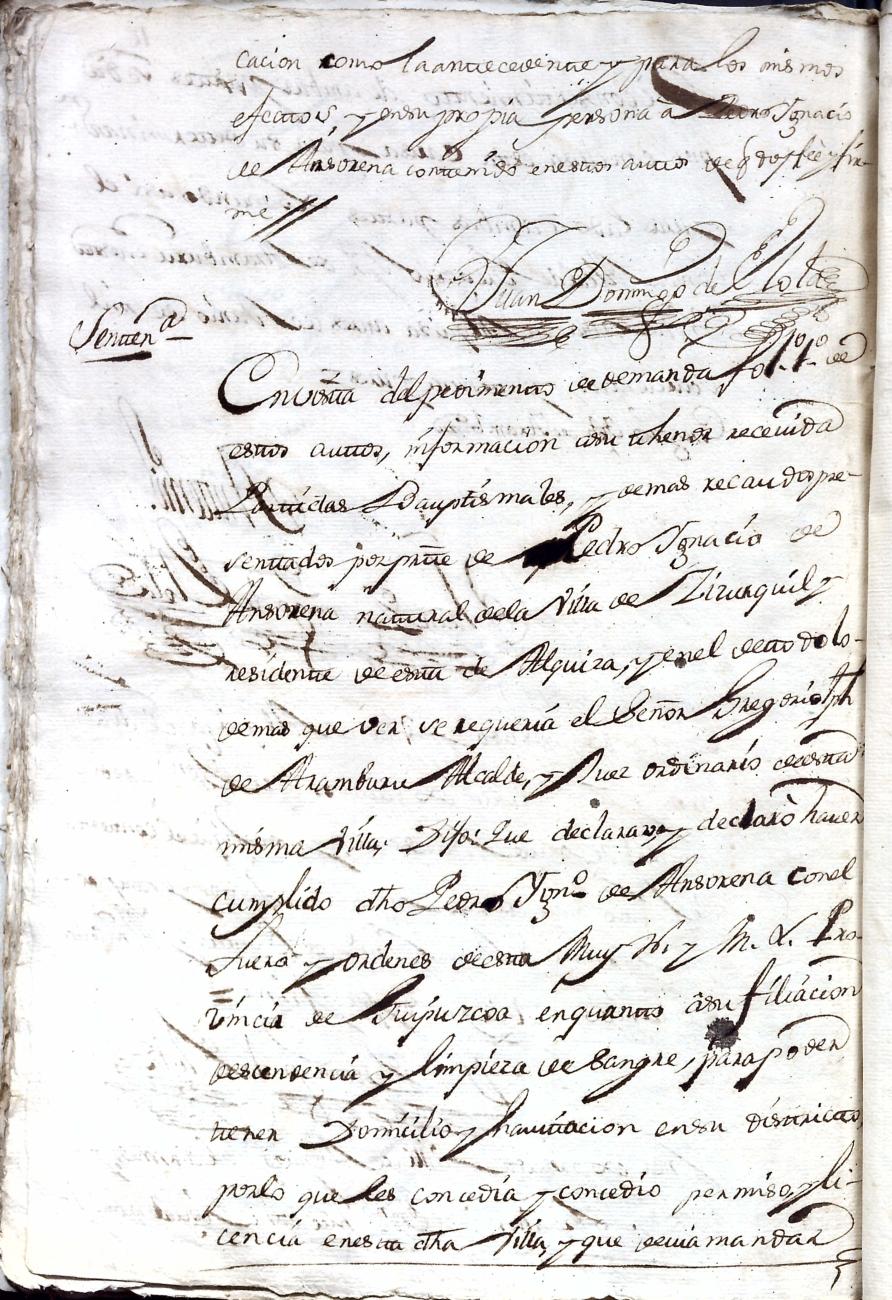 cacion como la antecedente y para los mismos
efectos, y en su propia persona â Pedro Ygnacio
de Ansorena contenido en estos autos de q doy fee y fir-
mè //
Juan Domingo de Elola
Senten.ª
En vista del pedimento de demanda fol. 1.º de
estos autos, informacion a su thenor recevida
Partidas Bauptismales, y demas recaudos pre-
sentados por prte de Pedro Ygnacio de
Ansorena natural de la Villa de Zizurquil y
residente de esta de Alquiza, y en el de todo lo-
demas que ver se requeria el Señor Gregorio Jph
de Aramburu Alcalde, y Juez ordinario de esta
misma Villa. Dijo: Que declarava, y declarò haver
cumplido dho Pedro Ygn.º de Ansorena con el
Fuero y ordenes de esta Muy N. y M. L. Pro-
vincia de Guipuzcoa en quanto â su filiacion
descendencia y limpieza de Sangre, para poder
tener Domicilio y havitacion en su districto,
por lo que les concedia y concedio permiso, y li-
cencia en esta dha Villa, y que devia mandar